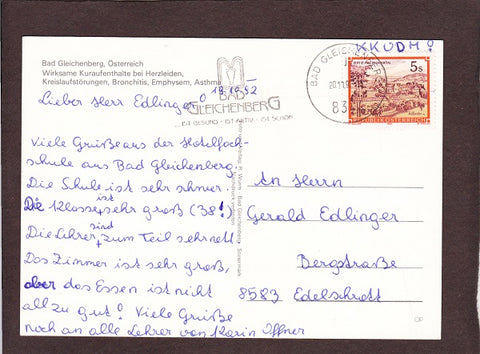 Bad Gleichenberg, Österreich
Wirksame Kuraufenthalte bei Herzleiden,
Kreislaufstörungen, Bronchitis, Emphysem, Asthma
18.10.92
Lieber Herr Edlinger!
Viele Grüße aus der Hotelfach-
schule aus Bad Gleichenberg.
Die Schule ist sehr schwer.
ist
Die 1 Klasse + sehr groß (38!)
sind
Die Lehrer + zum Teil sehr nett.
Das Zimmer ist sehr groß,
aber das Essen ist nicht
all zu gut! Viele Grüße
noch an alle Lehrer von Karin Offner
BAD
GLEICHENBERG
IST GESUND · IST AKTIV · IST SCHÖN
BAD GLEICHENBERG
83
KKUDM!
5s
REPUBLIK ÖSTERREICH
An Herrn
Gerald Edlinger
Bergstraße
8583 Edelschrott